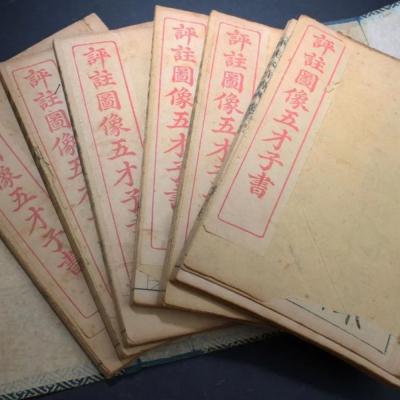 評註圖像五才子書
評註圖像五才子
評註圖像五才子書
評註圖像五才子書
評註圖像五才子書
像五才子書